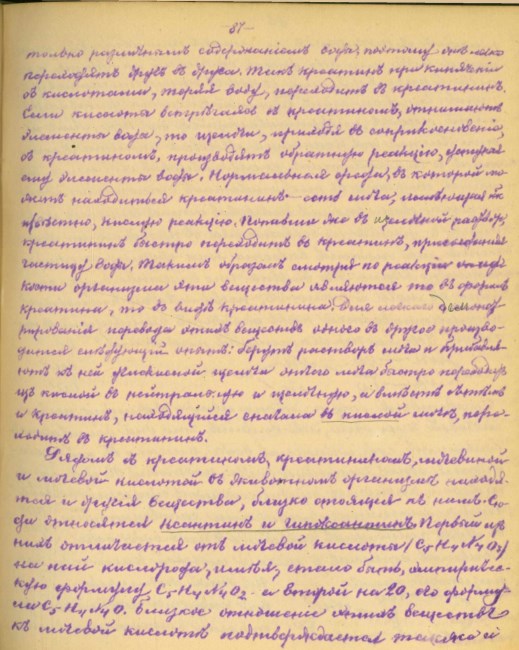 — 87 —
только различнымъ содержаніемъ воды, поэтому они легко
переходятъ другъ въ друга. Такъ креатинъ при кипяченіи
съ кислотами, теряя воду, переходитъ въ креатининъ.
Если кислота встрѣчаясь съ креатиномъ, отнимаютъ
элементы воды, то щелочи, приходя въ соприкосновеніе,
съ креатиномъ, производятъ обратную реакцію,
ему элементы воды. Нормальная среда, въ которой мо-
жетъ находиться креатининъ есть моча, имѣющая какъ
извѣстно, кислую реакцію. Попавши же въ щелочной растворъ,
креатининъ быстро переходитъ въ креатинъ, присоединяя
частицу воды. Такимъ образомъ смотря по реакціи жид-
кости организма эти вещества являются то въ формѣ
креатина, то въ видѣ креатинина. Для демонст-
рированія перевода этихъ веществъ одного въ другое произво-
дится слѣдующій опытъ: берутъ растворъ мочи и прибавля-
ютъ къ ней углекислой щелочи отчего моча быстро переходитъ
изъ кислой въ нейтральную и щелочную, а вмѣстѣ съ этимъ
и креатинъ, находящійся сначала въ кислой мочѣ, пере-
ходитъ въ креатининъ.
Рядомъ съ креатиномъ, креатининомъ, мочевиной
и мочевой кислотой въ животномъ организмѣ находят-
ся и другія вещества, близко стоящія къ нимъ. Сю-
да относятся ксантинъ и гипоксантинъ. Первый изъ
нихъ отличается отъ мочевой кислоты (C₅H₄N₄O₃)
на пай кислорода, имѣя, стало быть, эмпиричес-
кую формулу C₅H₄N₄O₂ - а второй на 2O, его форму-
ла C₅H₄N₄O. Близкое отношеніе этихъ веществъ
къ мочевой кислотѣ подтверждается также и